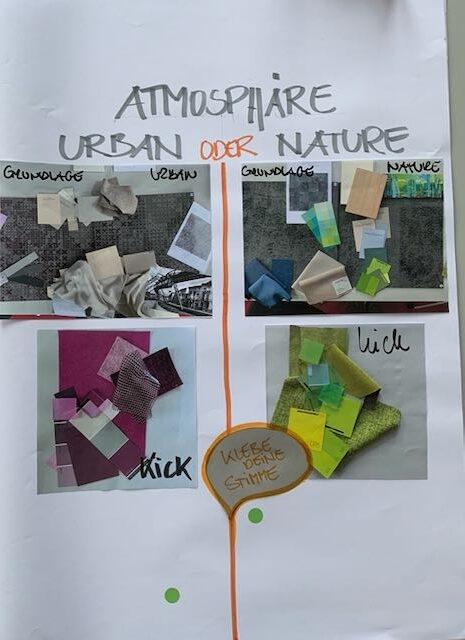 ATMOSPHÄRE
URBAN ODER NATURE
GRUNDLAGE URBAN
GRUNDLAGE NATURE
Kick
Kick
KLEBE
DEINE
STIMME